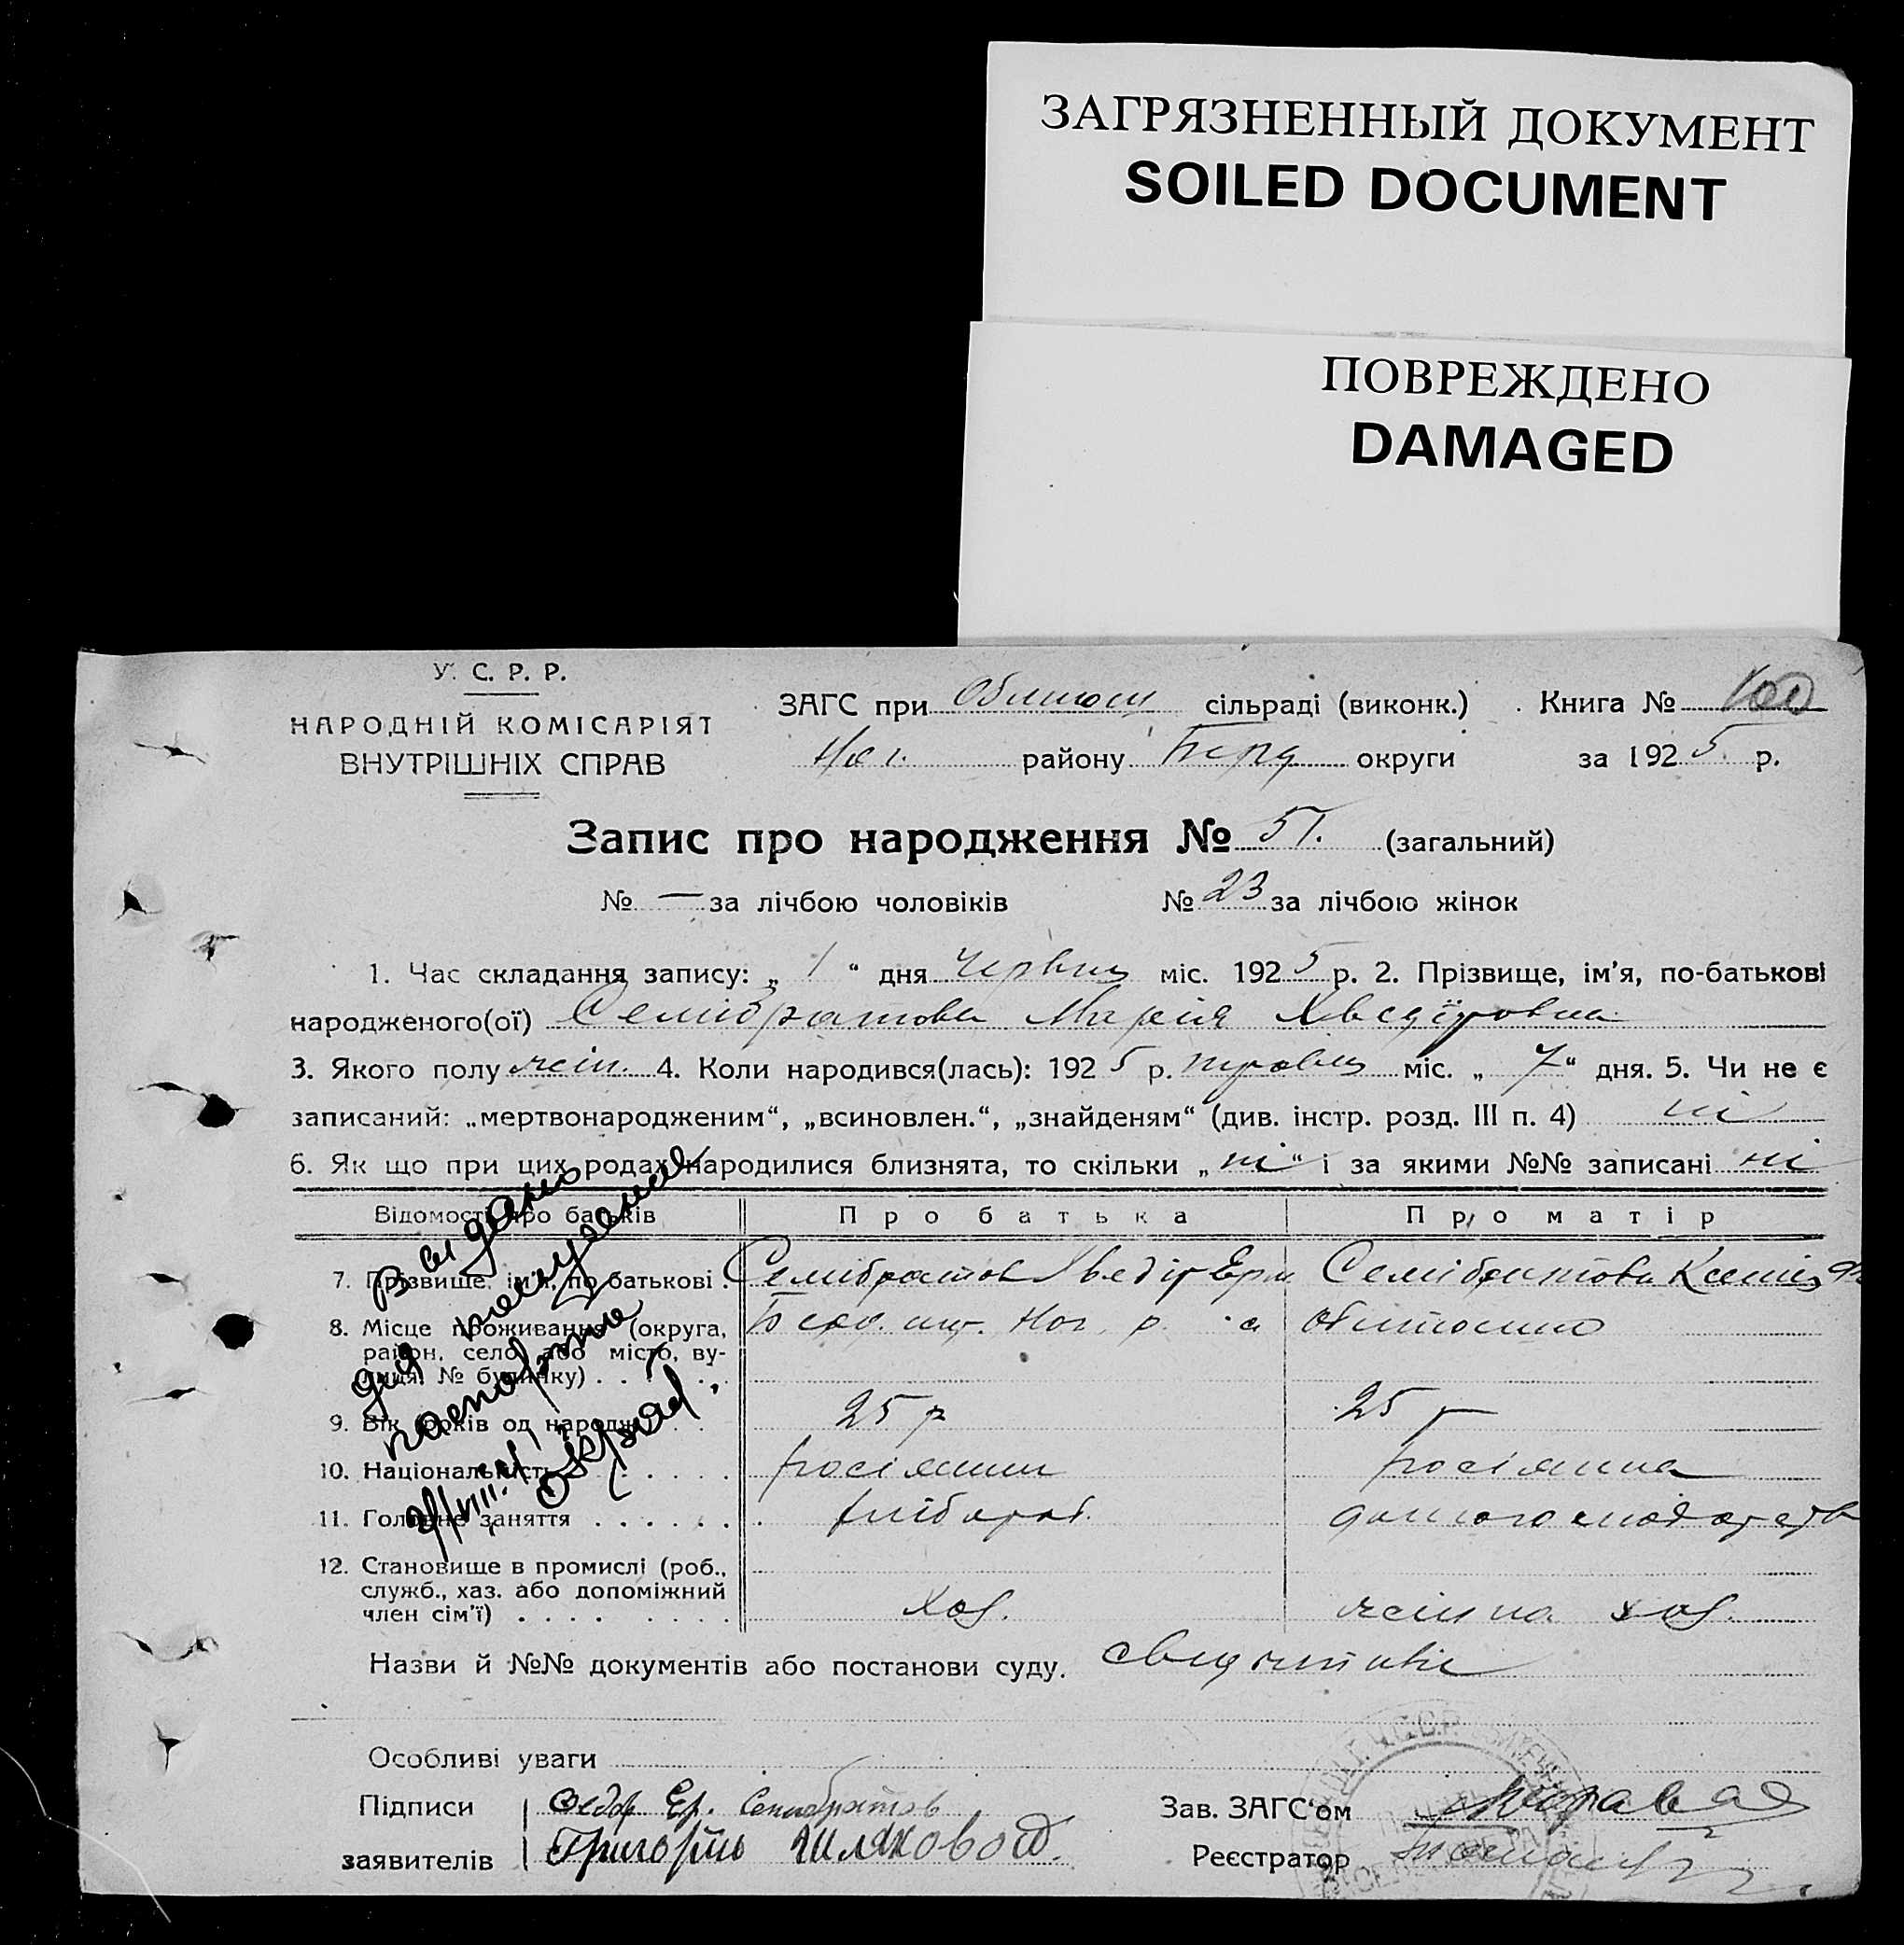 ЗАГРЯЗНЕННЫЙ ДОКУМЕНТ
SOILED DOCUMENT
ПОВРЕЖДЕНО
DAMAGED
У. С. Р. Р.
НАРОДНІЙ КОМІСАРІЯТ
ВНУТРІШНІХ СПРАВ
ЗАГС при сільраді (виконк.) Книга № 100
Ног. району Берд округи за 1925 р.
Запис про народження № 51. (загальний)
№ — за лічбою чоловіків № 23 за лічбою жінок
1. Час складання запису: „ 1 “ дня червня міс. 1925 р. 2. Прізвище, ім'я, по-батькові
народженого(ої) Семібратова Марія Хведіровна
3. Якого полу жін. 4. Коли народився(лась): 1925 р. травня міс. „ 7 “ дня. 5. Чи не є
записаний: „мертвонародженим“, „всиновлен.“, „знайденям“ (див. інстр. розд. III п. 4) ні
6. Як що при цих родах народилися близнята, то скільки „ ні “ і за якими №№ записані ні
Відомості про батьків Про батька Про матір
7. Прізвище, ім'я, по батькові . Семібратов Хведір Ерм Семібратова Ксенія
8. Місце проживання (округа, район, село, або місто, вулиця, № будинку) . . . Ног. р.
9. Вік (років од народж.) . . 25 р 25 р
10. Національність . . . . . росіянин росіянина
11. Головне заняття . . . . . . хлібороб. домогосподарство
12. Становище в промислі (роб., служб., хаз. або допоміжний член сім'ї) . . . . . . . . Хоз. жінка хоз.
Выдано
для получения
паспорта
Назви й №№ документів або постанови суду.
Особливі уваги
Підписи Федор Ер. Семибратов Зав. ЗАГС'ом
заявителів Григорій Шляховой. Реєстратор